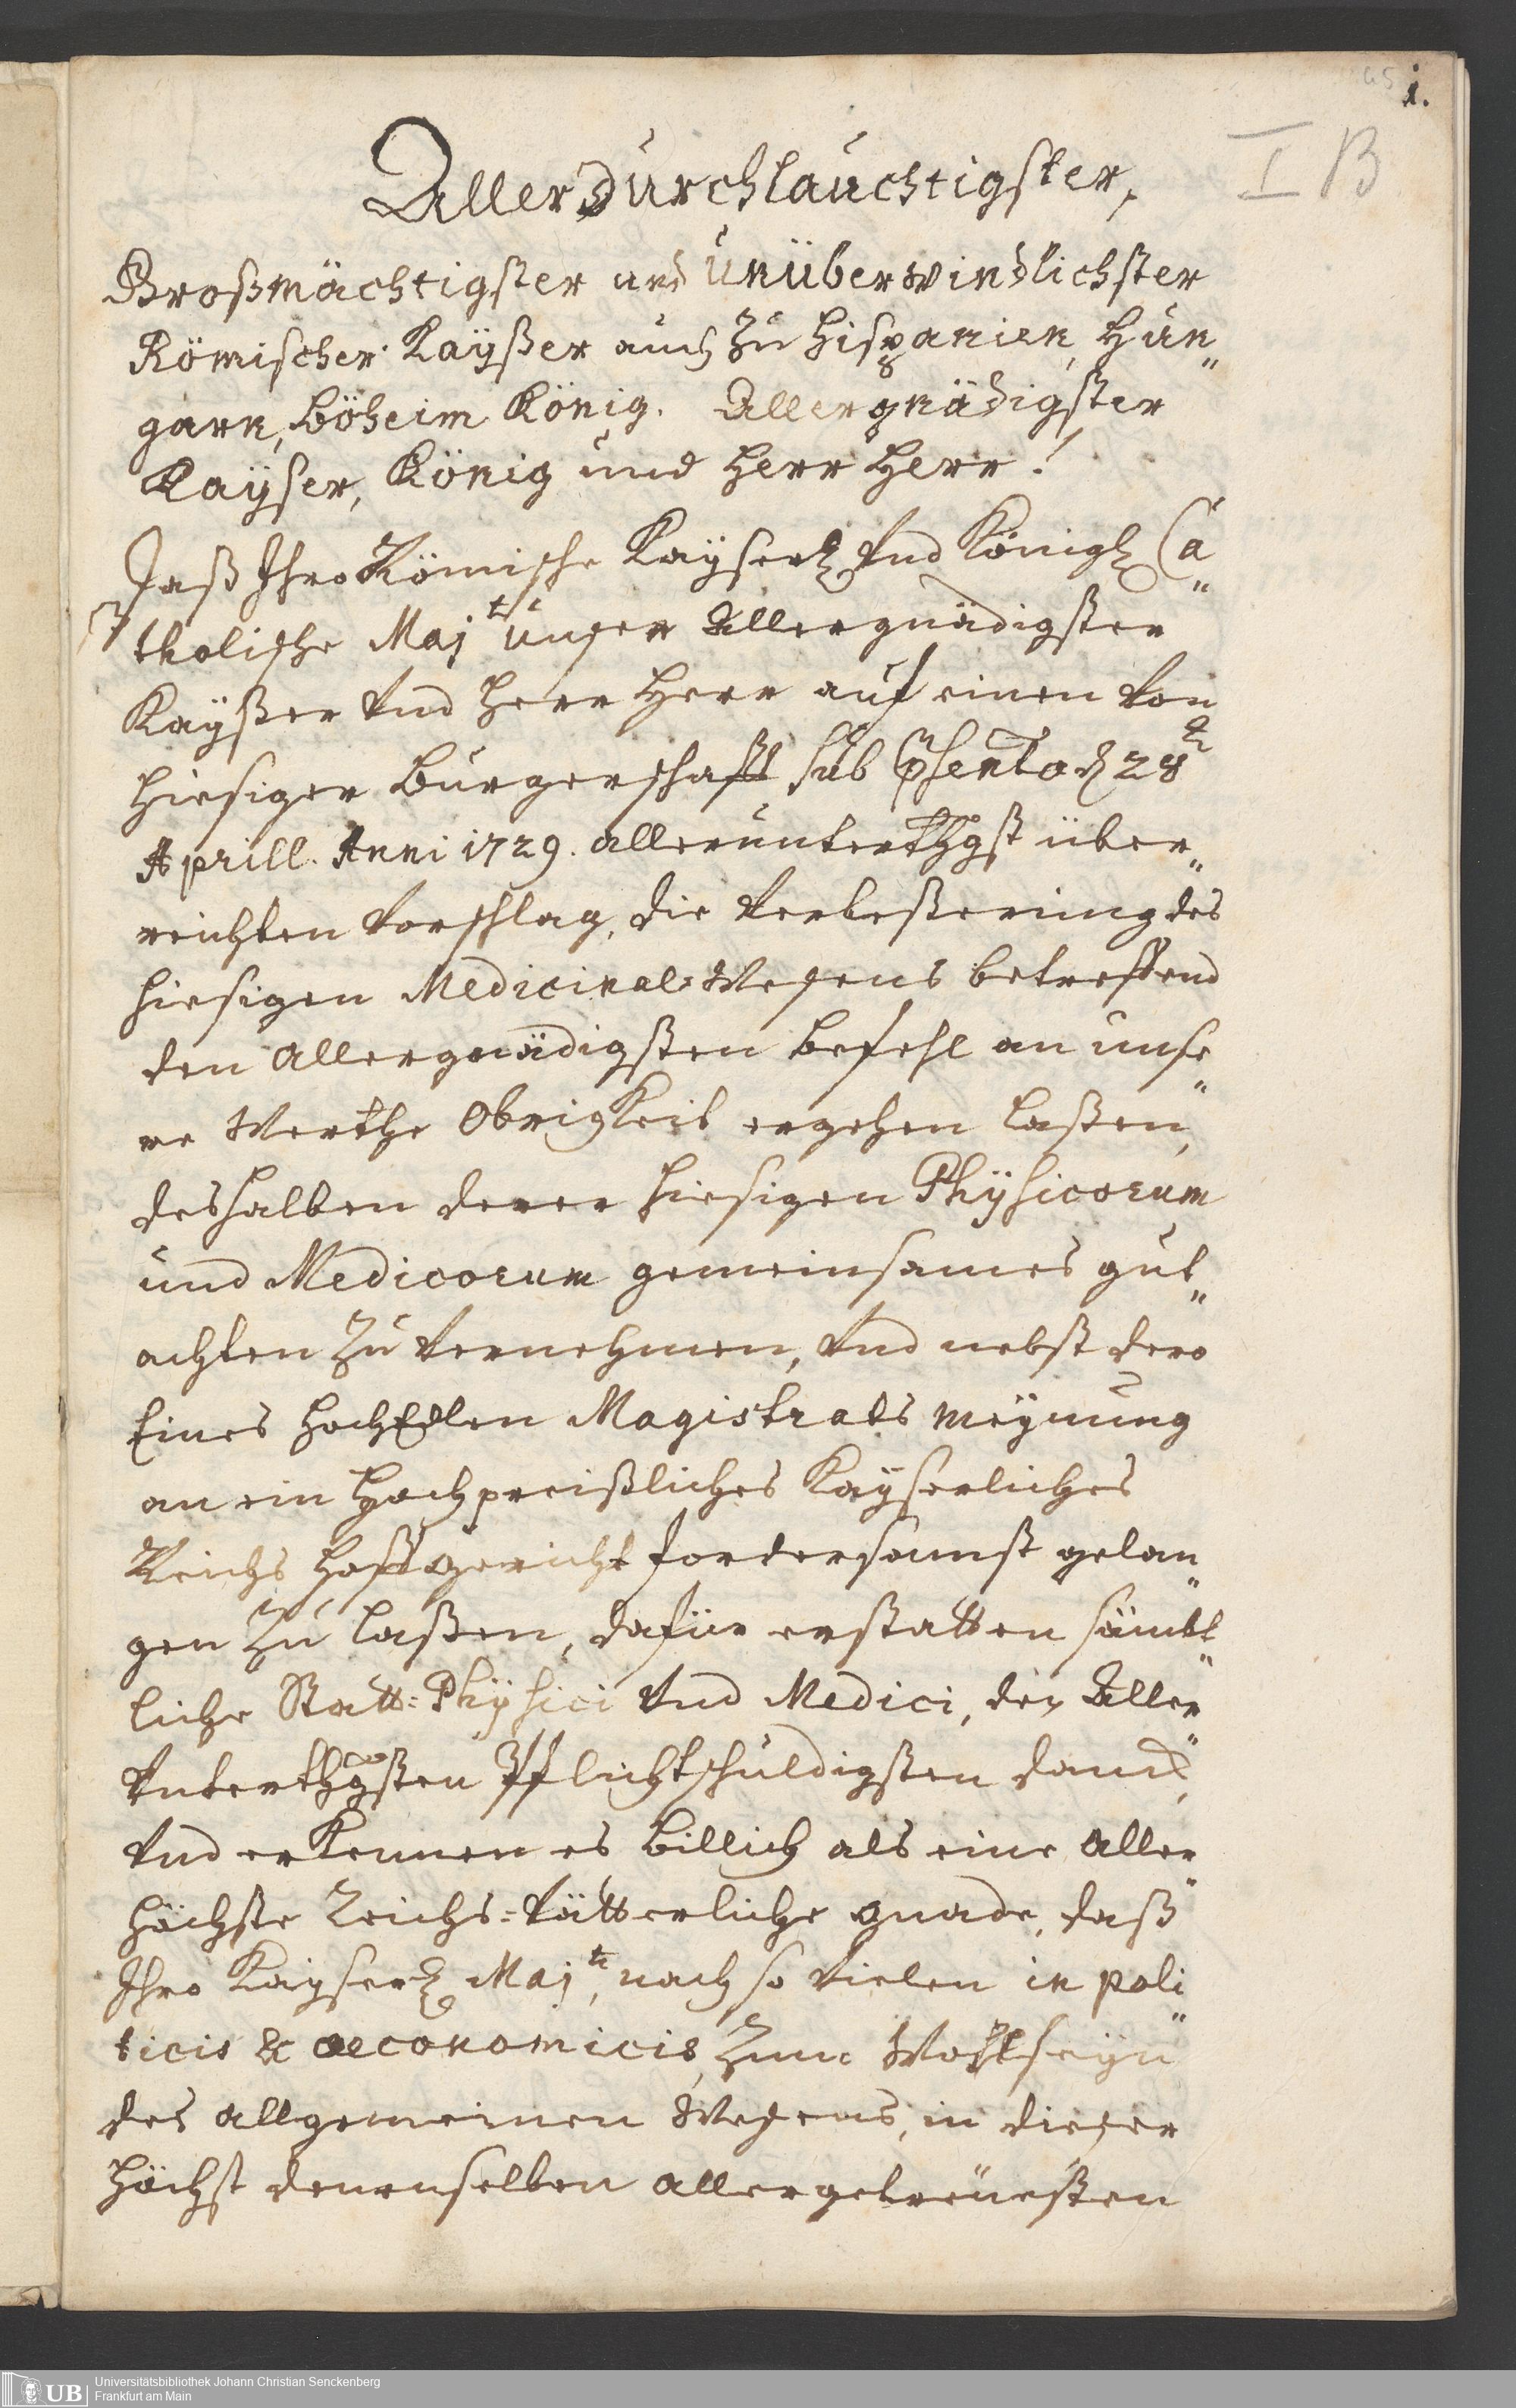 65 1.
I B
Allerdurchlauchtigster,
Großmächtigster und Unüberwindlichster
Römischer Kayßer auch zu Hispanien, Hun„
garn, Böheim König. Allergnädigster
Kayser, König und Herr Herr!
Daß Ihro Römische Kayserl. Vnd Königl. Ca„
tholische Maj.t unser Allergnädigster
Kayßer Vnd Herr Herr auf einen von
hiesiger Bürgerschafft sub Psento d 28t
Aprill. Anni 1729. allerunterthgst über„
reichten Vorschlag, die Verbeßerung des
hiesigen Medicinal-Wesens betreffend
den Allergnädigsten befehl an unse„
re Werthe Obrigkeit ergehen laßen,
deshalben derer hiesigen Physicorum
und Medicorum gemeinsames gut„
achten zu Vernehmen, Vnd nebst dero
Eines HochEdlen Magistrats meynung
an ein Hochpreißliches Kayserliches
Reichs Hoffgericht fordersamst gelan„
gen zu laßen, dafür erstatten sämbt„
liche Statt-Physici Vnd Medici, den Aller„
Vnterthgsten Pflichtschuldigsten danck,
Vnd erkennen es billich als eine Aller„
höchste Reichs-Vätterliche gnade, daß
Ihro Kayserl. Maj.t, nach so Vielen in poli„
ticis & oeconomicis, zum Wohlseyn
des allgemeinen Wesens, in dieser
Höchst denenselben allergetreuesten
UB Universitätsbibliothek Johann Christian Senckenberg
Frankfurt am Main